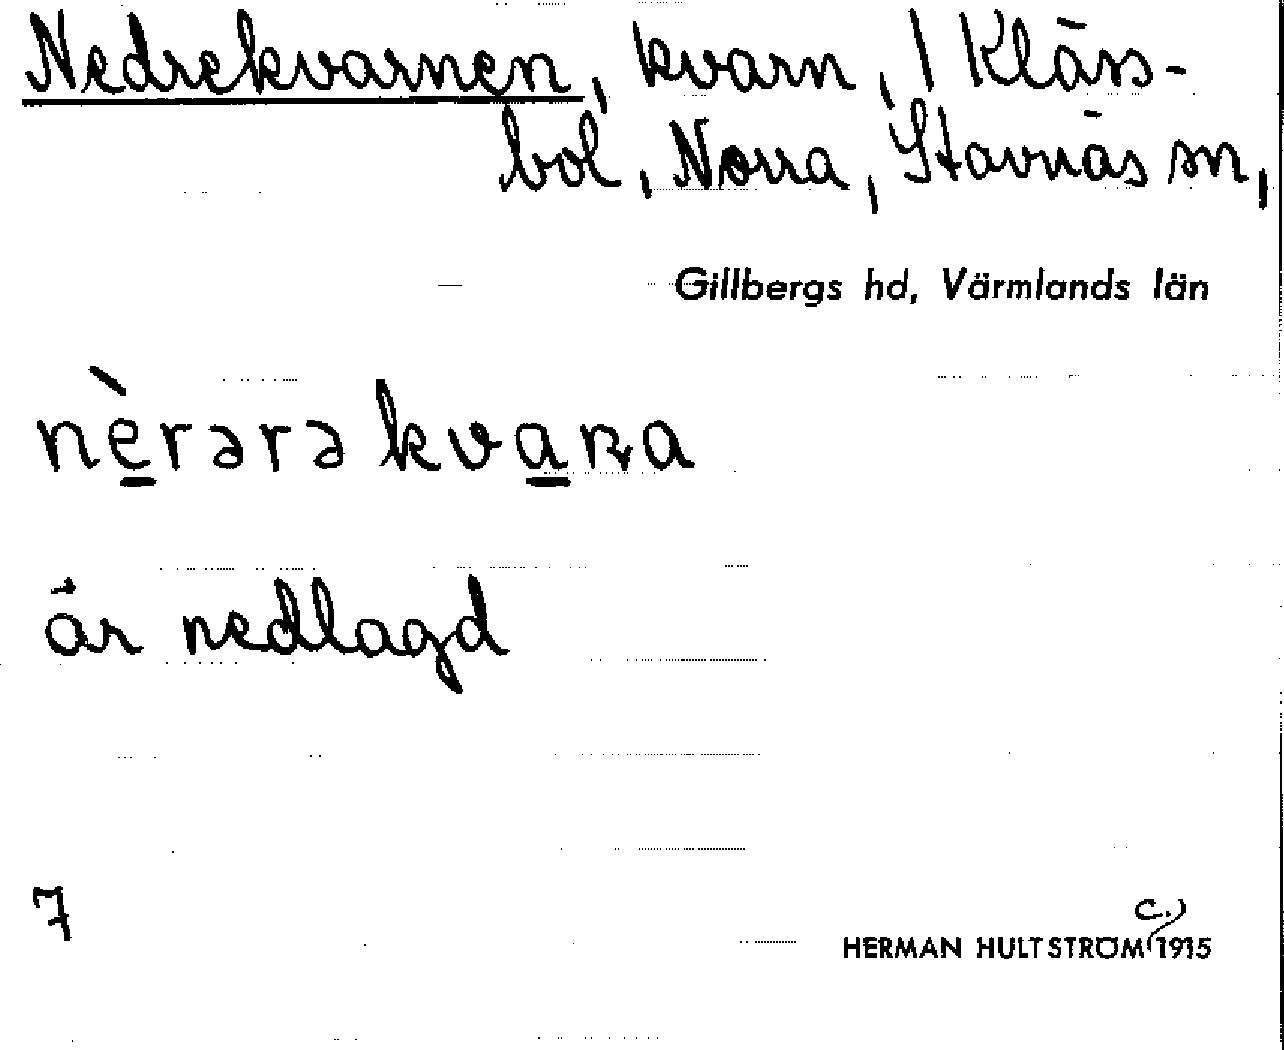 Nedrekvarnen, kvarn, / Kläss-
bol, Norra, Stavnäs sn,
Gillbergs hd, Värmlands län
nèrərə kvaɳa
är nedlagd
7
c.)
HERMAN HULTSTRÖM 1915